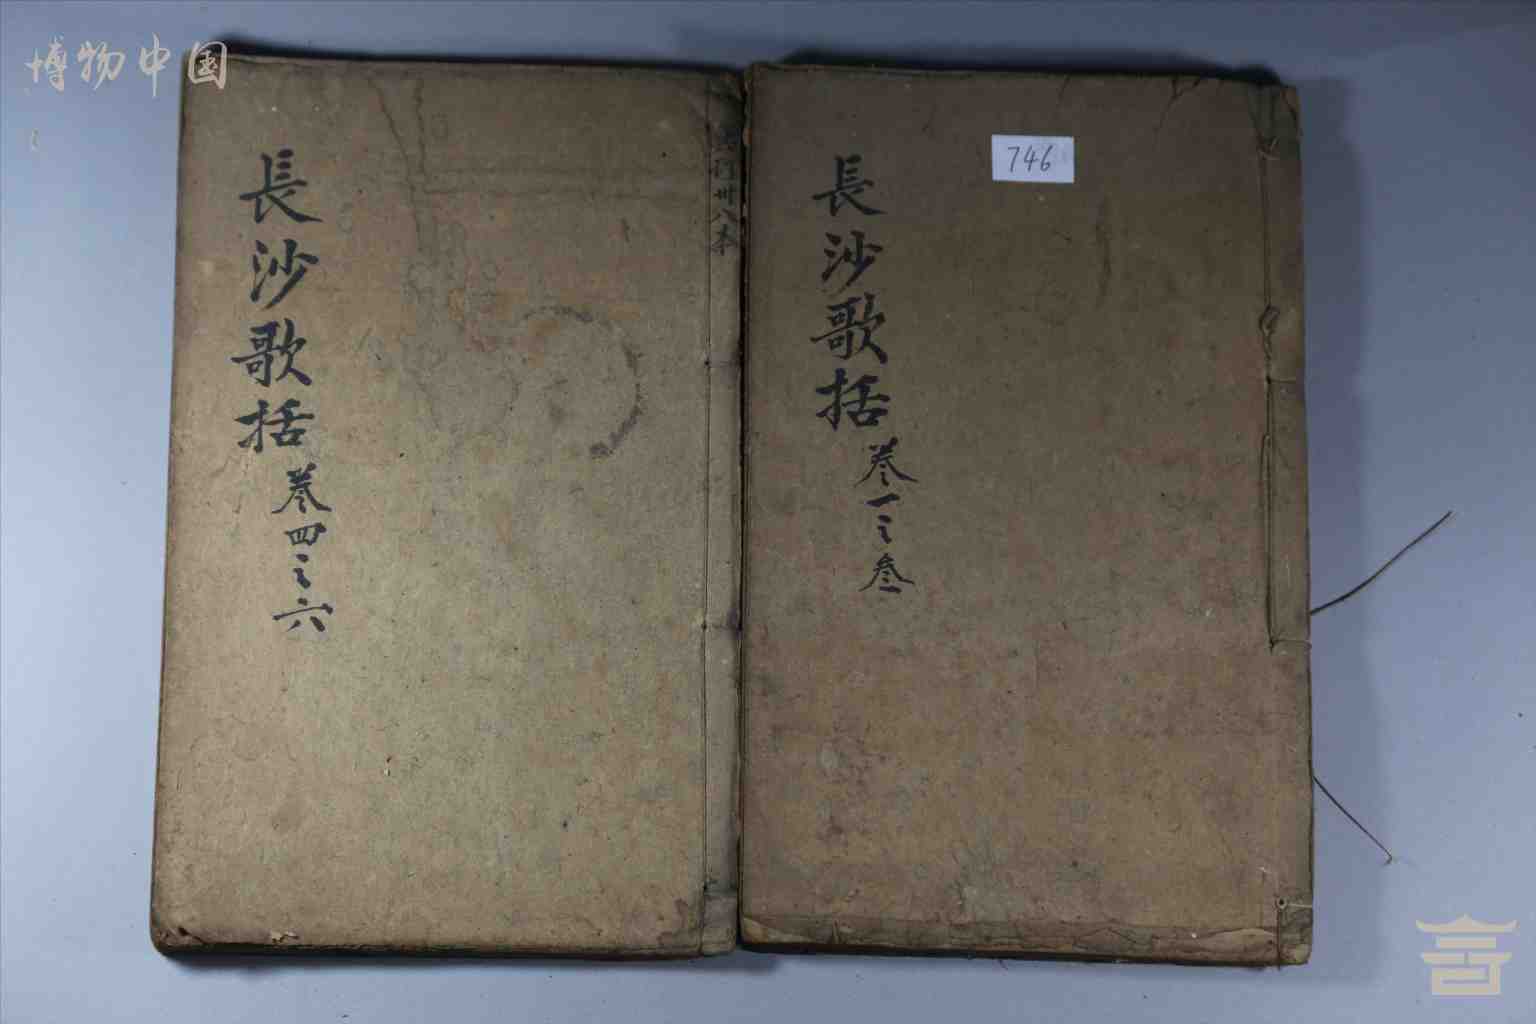 博物中国
長沙歌括
卷一之叄
746
長沙歌括
卷四之六
卅八本